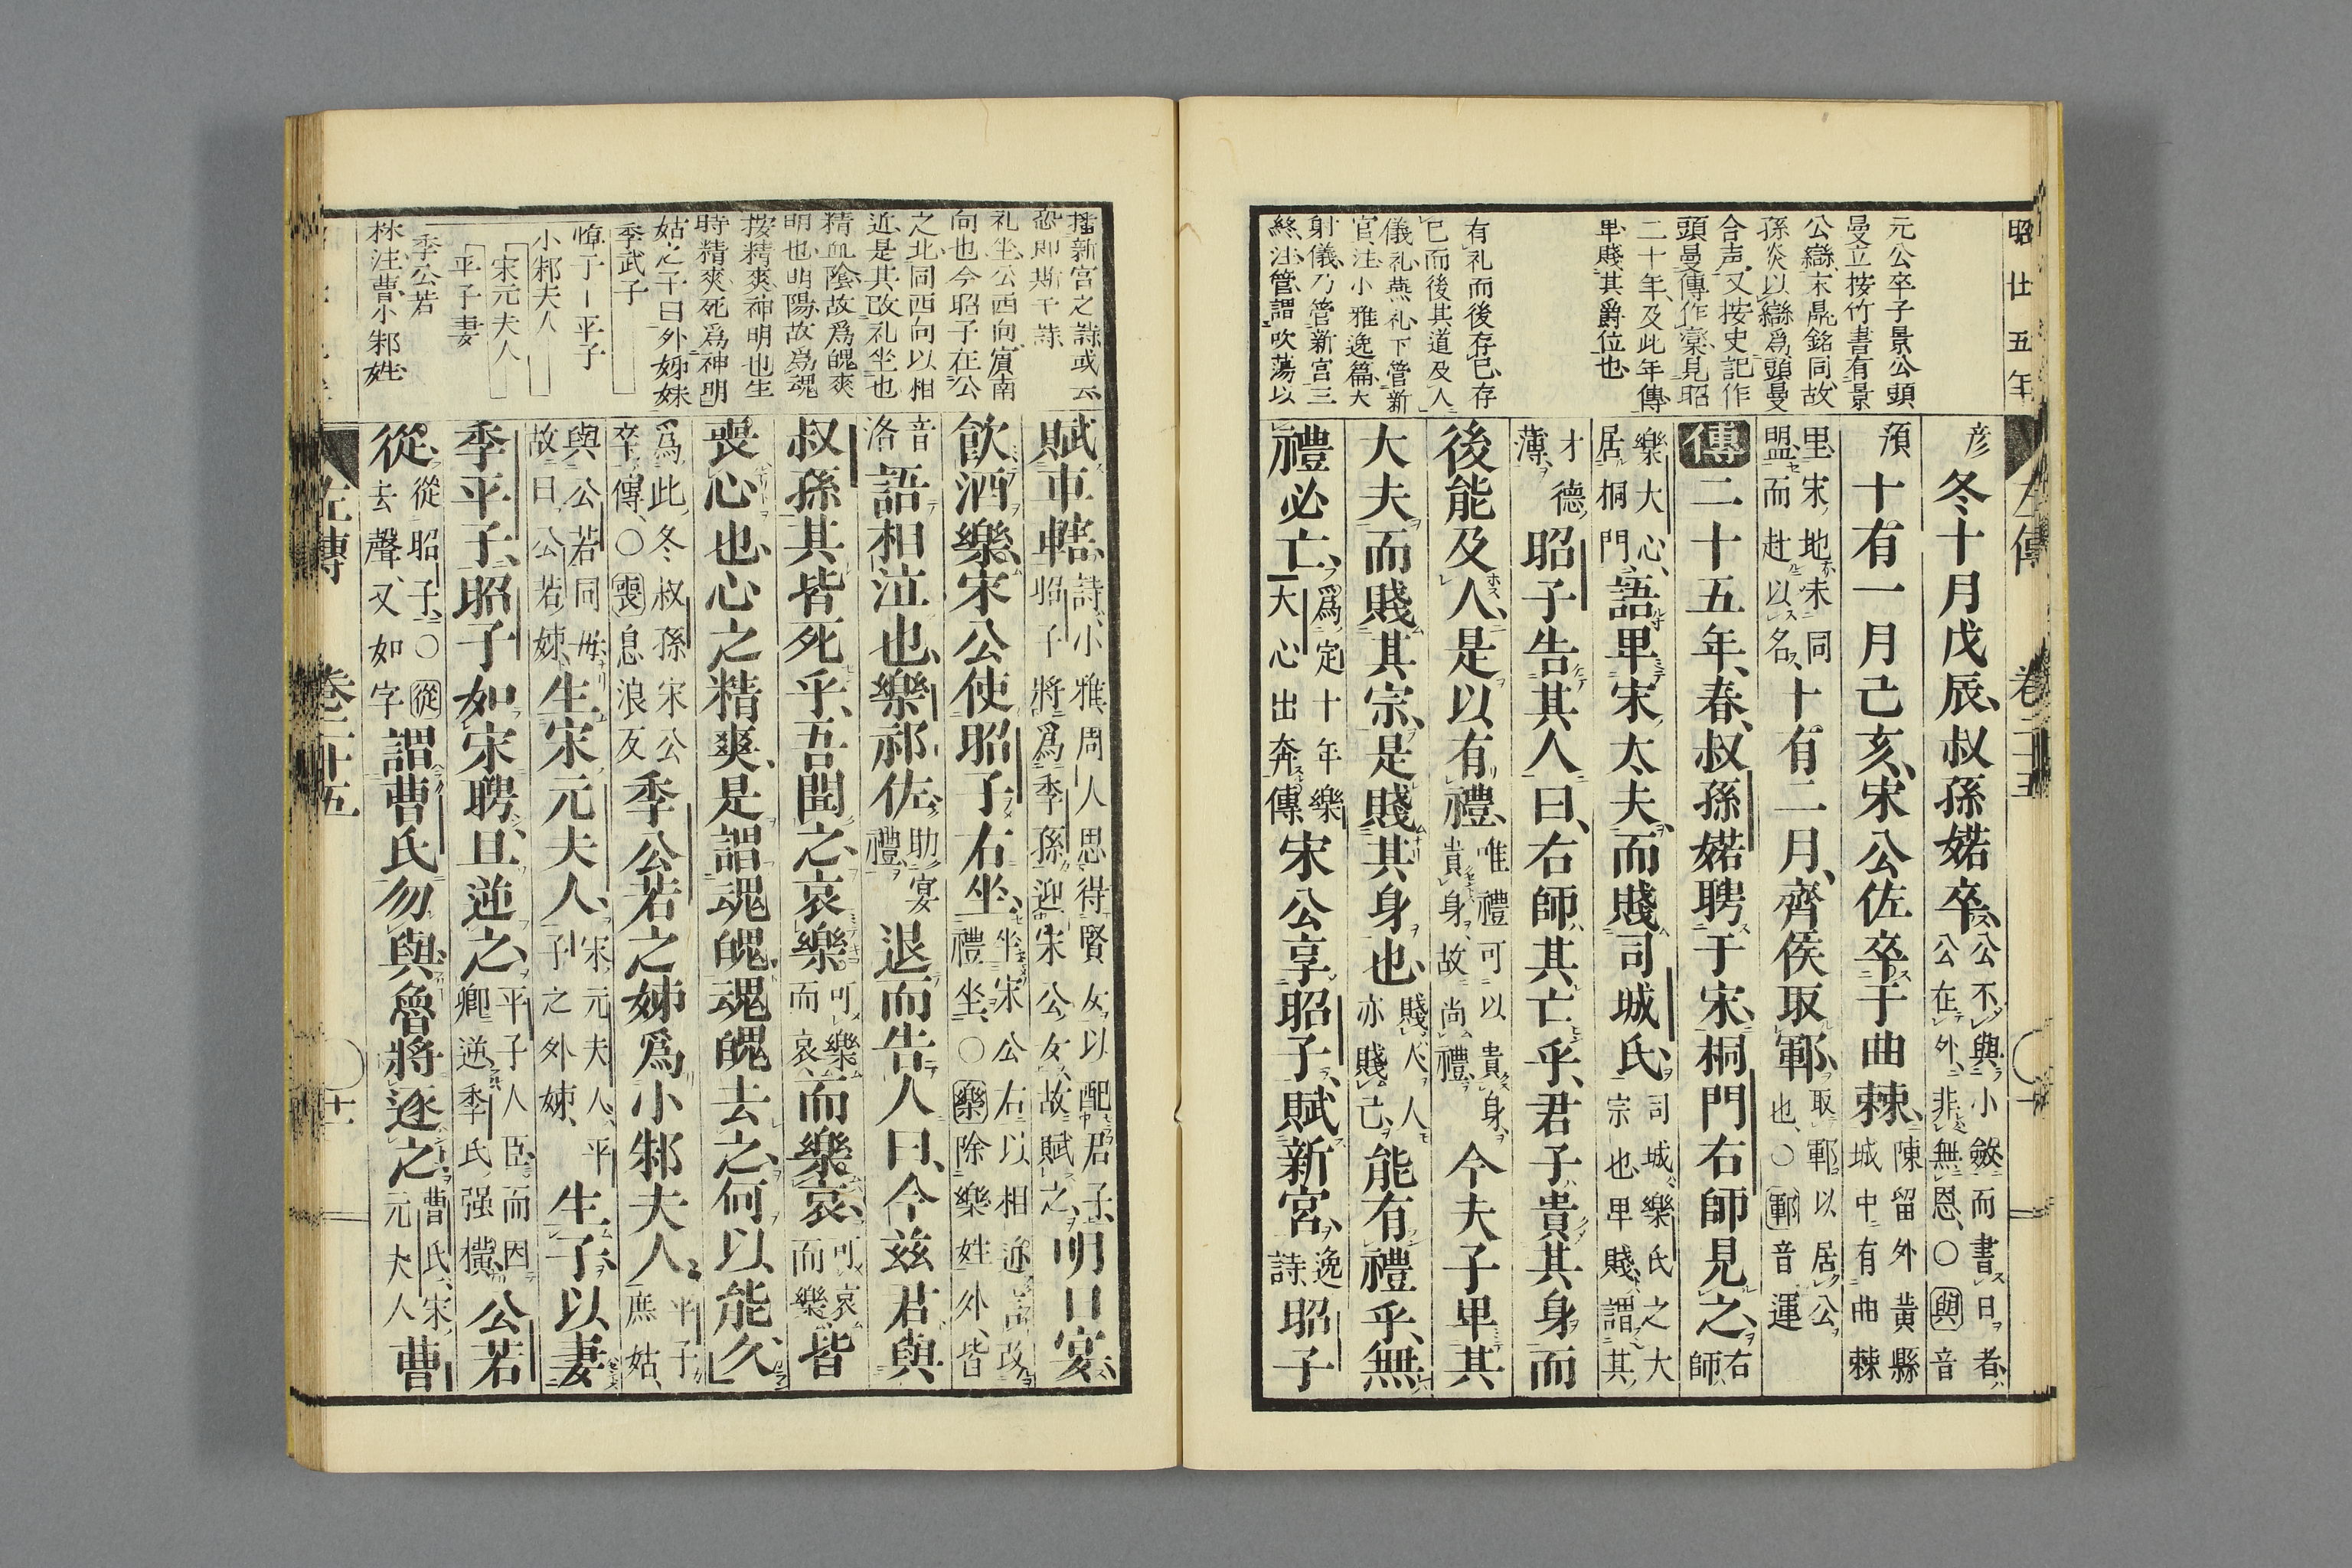 昭廿五年
左傳 卷二十五
元公卒子景公頭
曼立按竹書有景
公䜌宋鼎銘同故
孫炎以䜌爲頭曼
合声又按史記作
頭曼傳作欒見昭
二十年及此年傳
卑賤其爵位也
有礼而後存已存
已而後其道及人
儀礼燕礼下管新
官注小雅逸篇大
射儀乃管新宮三
終注管謂吹蕩以
彥 冬十月戊辰叔孫婼卒 公不與小斂而書日者公在外非無恩〇與音
預 十有一月己亥宋公佐卒于曲棘 陳留外黃縣城中有曲棘
里宋地未同盟而赴以名 十有二月齊侯取鄆 取鄆以居公也〇鄆音運
傳 二十五年春叔孫婼聘于宋桐門右師見之 右師
樂大心居桐門 語卑宋大夫而賤司城氏 司城樂氏之大宗也卑賤謂其
才德薄 昭子告其人曰右師其亡乎君子貴其身而
後能及人是以有禮 唯禮可以貴身貴身故尚禮 今夫子卑其
大夫而賤其宗是賤其身也 賤人人亦賤己 能有禮乎無
禮必亡 爲定十年樂大心出奔傳 宋公享昭子賦新宮 逸詩 昭子
播新宮之詩或云
恐即斯干詩
礼坐公西向賓南
向也今昭子在公
之北同西向以相
近是其改礼坐也
精血陰故爲魄爽
明也明陽故爲魂
按精爽神明也生
時精爽死爲神明
姑之子曰外姊妹
季武子
悼子—平子
小邾夫人
宋元夫人
平子妻
季公若
林注曹小邾姓
賦車轄 詩小雅周人思得賢女以配君子昭子將爲季孫迎宋公女故賦之 明日宴
飲酒樂宋公使昭子右坐 坐宋公右以相近言改禮坐〇樂除樂姓外皆
音洛 語相泣也樂祁佐 助宴禮 退而告人曰今茲君與
叔孫其皆死乎吾聞之哀樂 可樂而哀 而樂哀 可哀而樂 皆
喪心也心之精爽是謂魂魄魂魄去之何以能久
爲此冬叔孫宋公卒傳〇喪息浪反 季公若之姊爲小邾夫人 平子庶姑
與公若同母故曰公若姊 生宋元夫人 宋元夫人平子之外姊 生子以妻
季平子昭子如宋聘且逆之 平子人臣而因卿逆季氏强橫 公若
從 從昭子〇從去聲又如字 謂曹氏勿與魯將逐之 曹氏宋元夫人 曹
左傳 卷二十五 十一